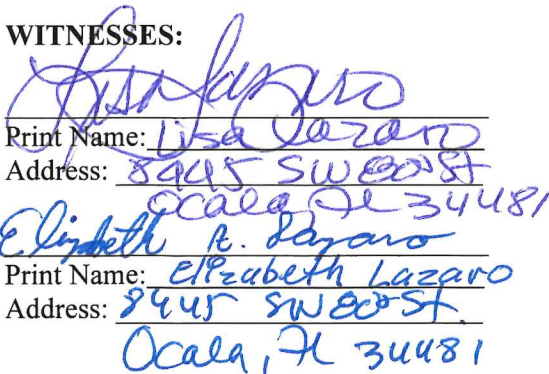 WITNESSES:
Lisa Lazaro
Print Name: Lisa Lazaro
Address: 8445 SW 80th St
Ocala, FL 34481
Elizabeth A. Lazaro
Print Name: Elizabeth Lazaro
Address: 8445 SW 80th St.
Ocala, FL 34481